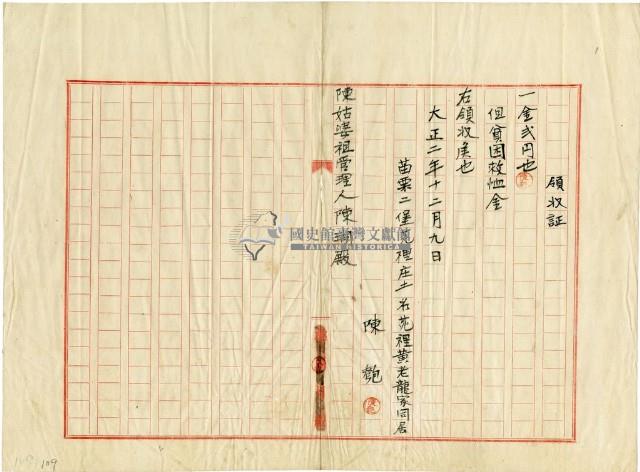 領収証
一金弐円也
但貧困救恤金
右領收候也
大正二年十二月九日
苗栗二堡苑裡庄土名苑裡黃老龍家同居
陳 鮑
陳姑婆祖管理人陳瑚殿
國史館臺灣文獻館
TAIWAN HISTORICA
109